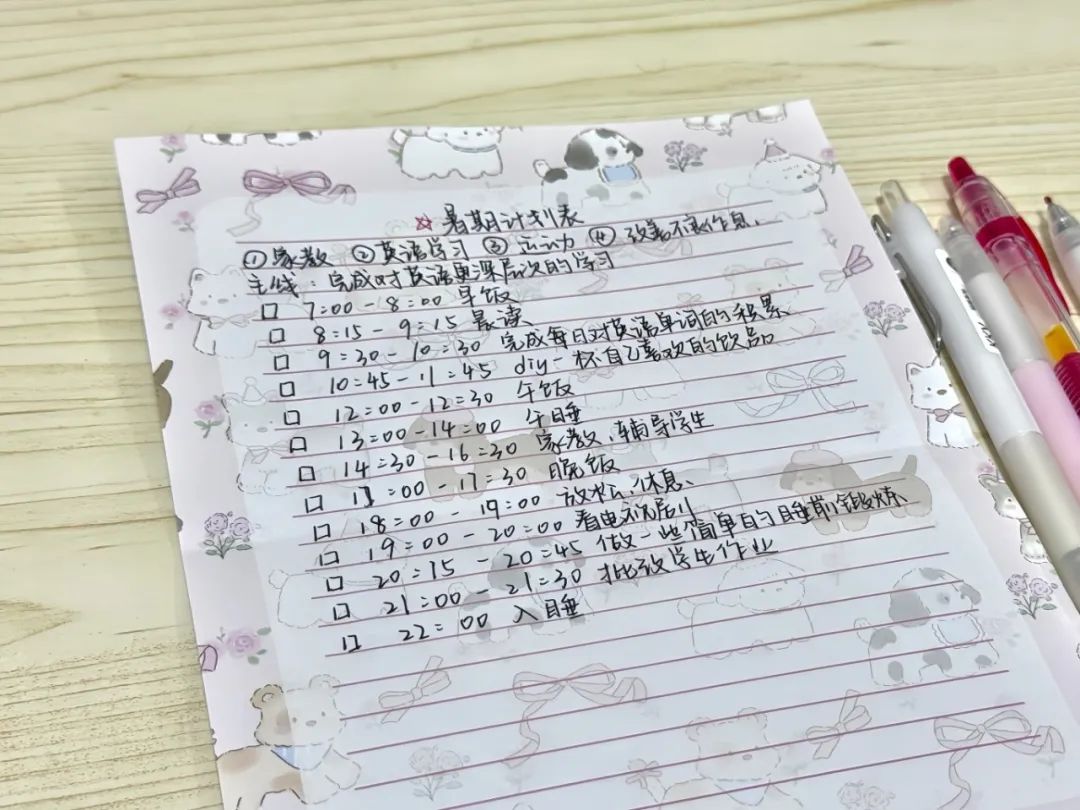 ☆ 暑期计划表
① 家教 ② 英语学习 ③ 运动 ④ 改善不良作息.
主线:完成对英语更深层次的学习
□ 7:00-8:00 早饭
□ 8:15-9:15 晨读
□ 9:30-10:30 完成每日对英语单词的积累
□ 10:45-11:45 diy一杯自己喜欢的饮品
□ 12:00-12:30 午饭
□ 13:00-14:00 午睡
□ 14:30-16:30 家教、辅导学生
□ :00-17:30 晚饭
□ 18:00-19:00 放松、休息、
□ 19:00-20:00 看电视剧
□ 20:15-20:45 做一些简单的睡前锻炼
□ 21:00-21:30 批改学生作业
□ 22:00 入睡